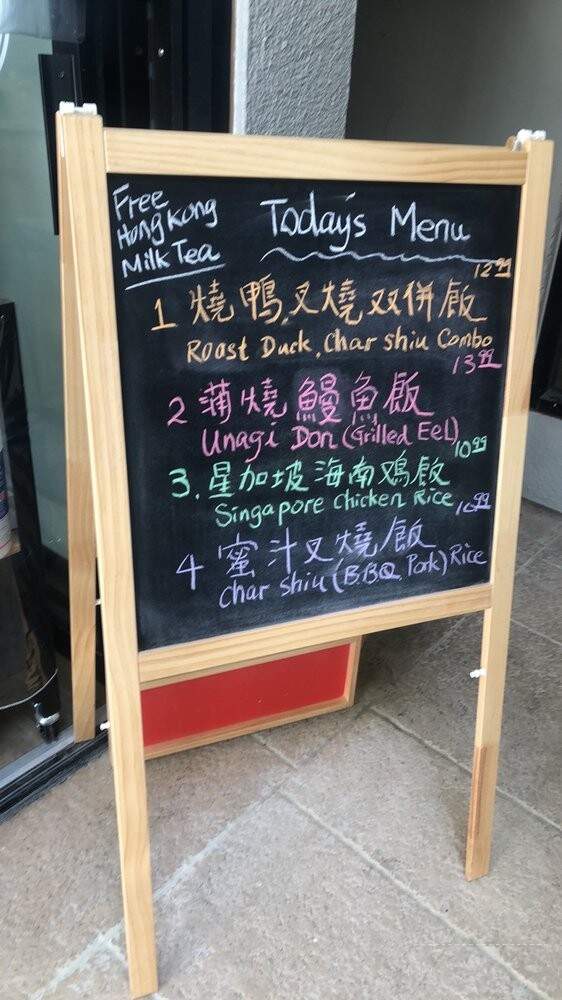 Free
Hong Kong
Milk Tea
Today's Menu
12.99
1 燒鴨,叉燒双併飯
Roast Duck, Char shiu Combo
13.99
2 蒲燒鰻魚飯
Unagi Don (Grilled Eel)
10.99
3. 星加坡海南鸡飯
Singapore Chicken Rice
4 蜜汁叉燒飯
Char shiu (B.B.Q Pork) Rice